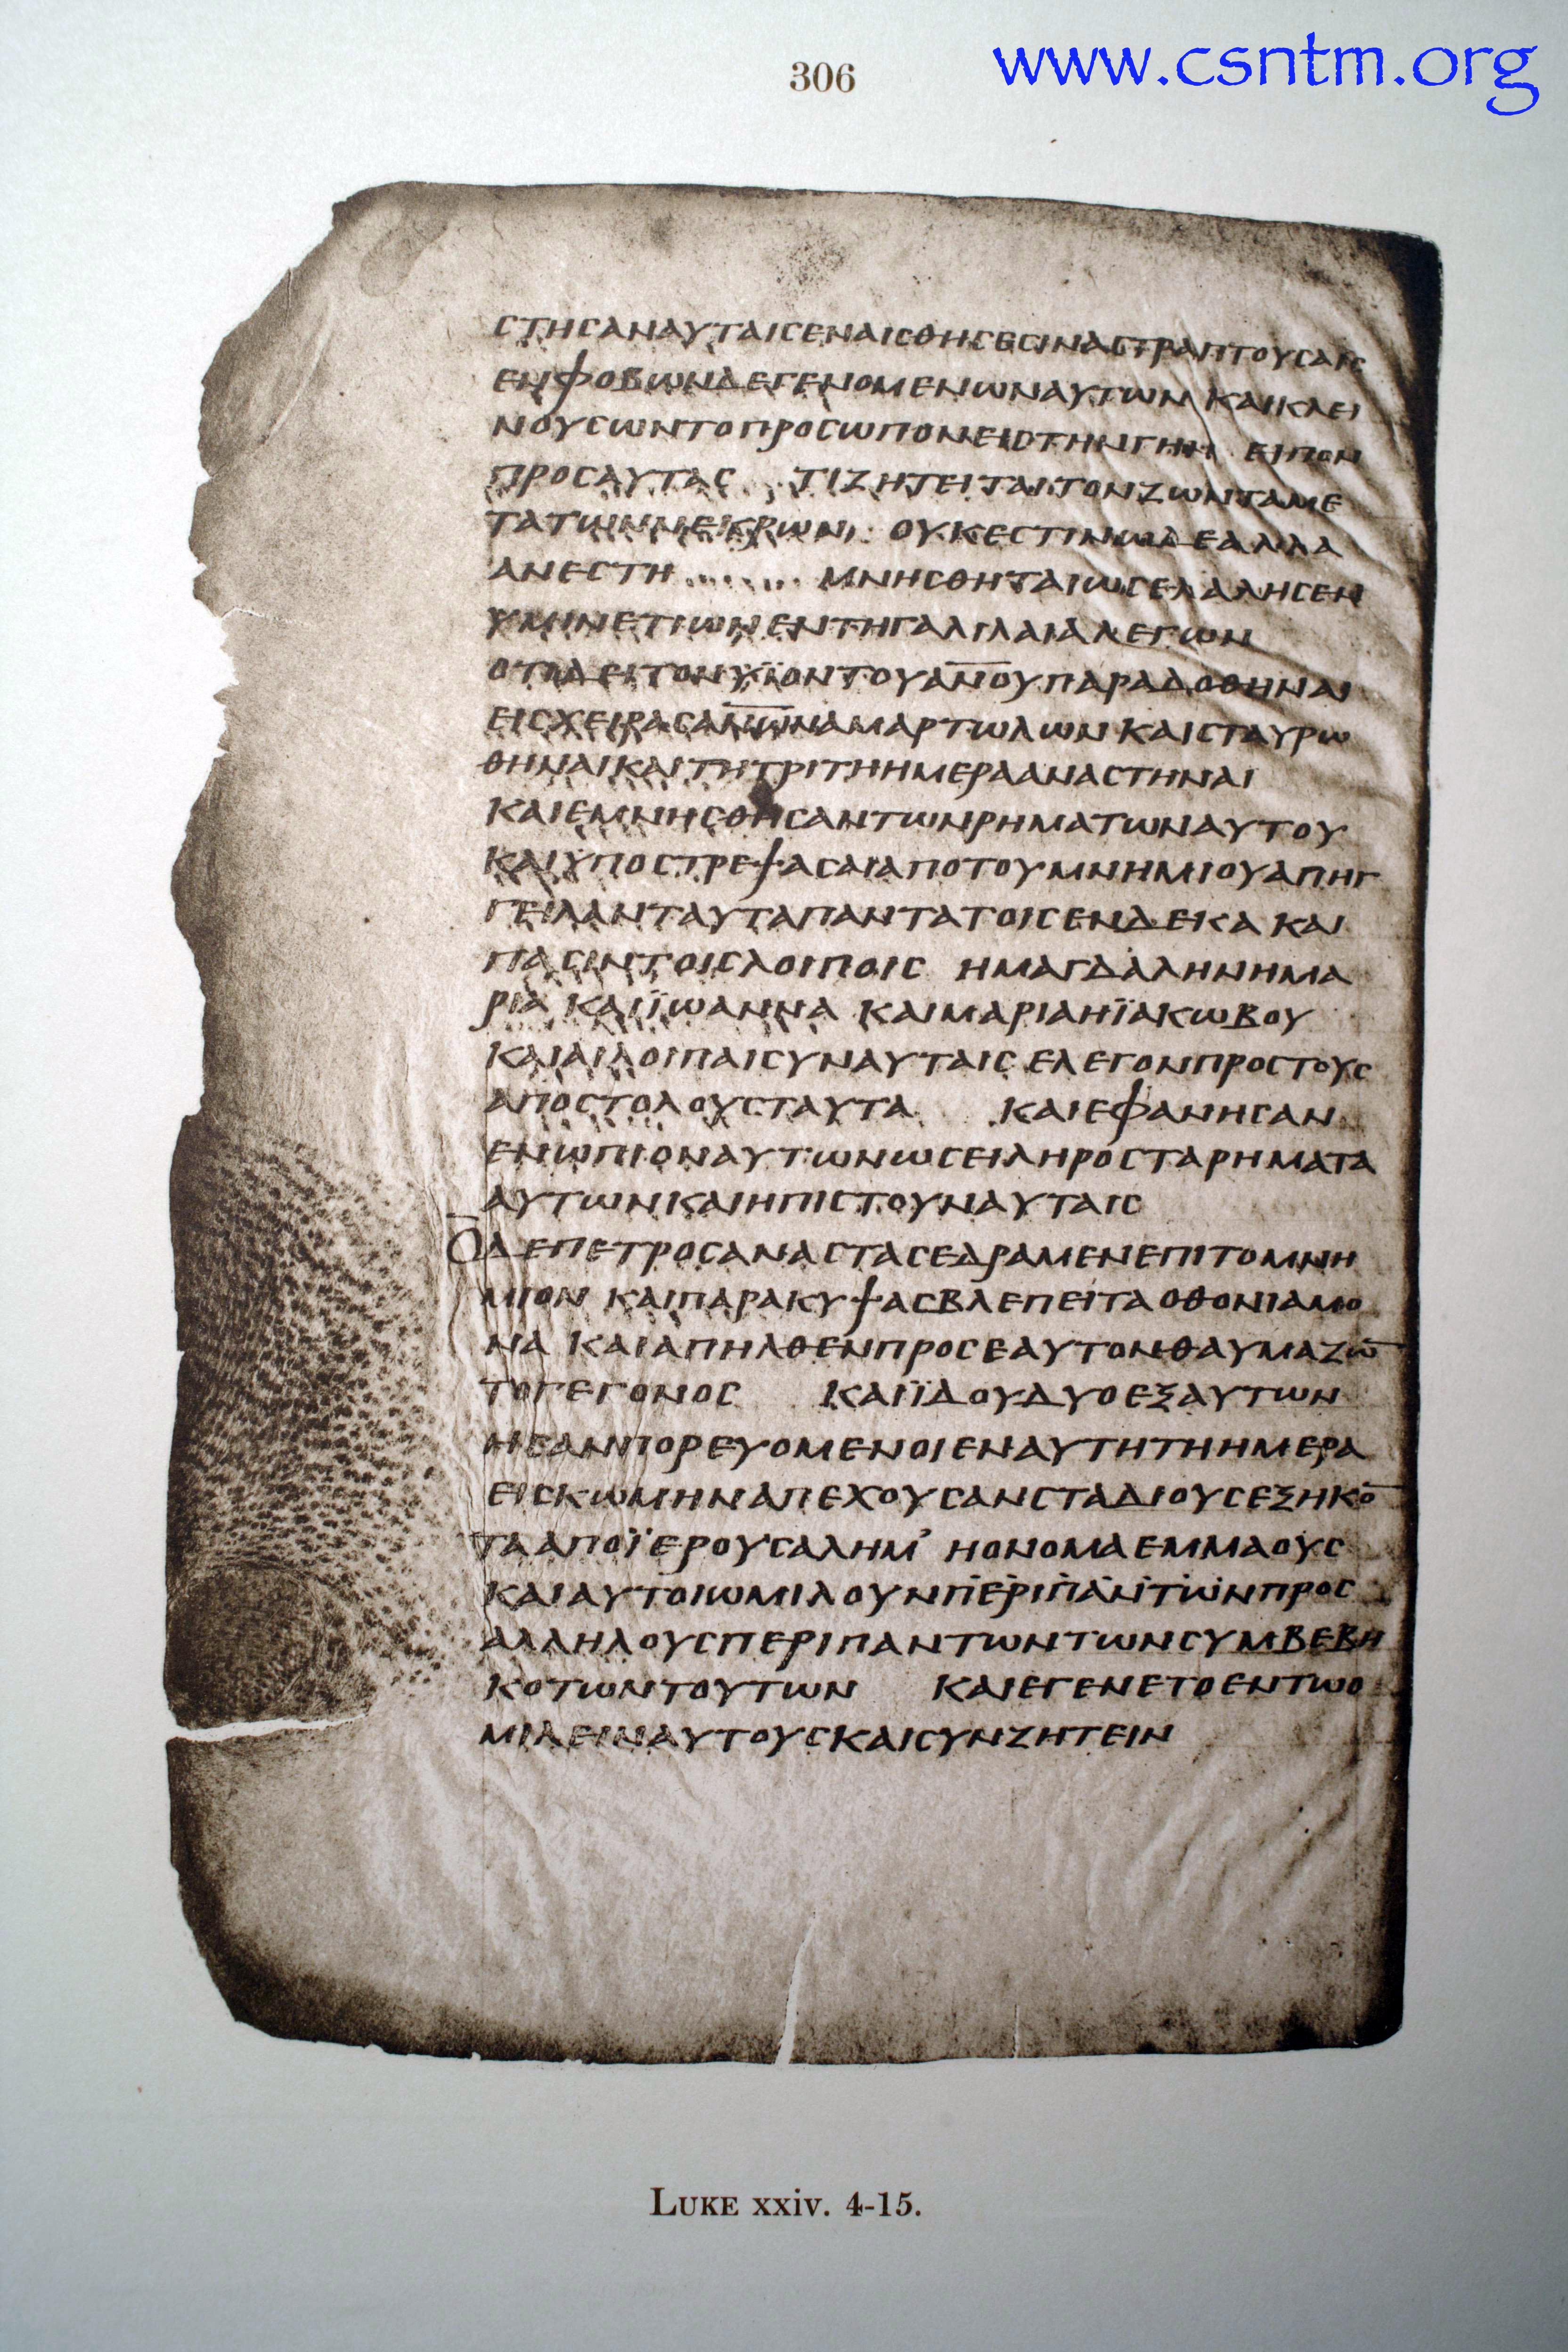 306
www.csntm.org
ϹΤΗϹΑΝΑΥΤΑΙϹΕΝΑΙϹΘΗϹΕϹΙΝΑϹΤΡΑΠΤΟΥϹΑΙϹ
ΕΝΦΟΒΩΝΔΕΓΕΝΟΜΕΝΩΝΑΥΤΩΝ ΚΑΙΚΛΕΙ
ΝΟΥϹΩΝΤΟΠΡΟϹΩΠΟΝΕΙϹΤΗΝΓΗΝ ΕΙΠΟΝ
ΠΡΟϹΑΥΤΑϹ ΤΙΖΗΤΕΙΤΑΙΤΟΝΖΩΝΤΑΜΕ
ΤΑΤΩΝΝΕΚΡΩΝ ΟΥΚΕϹΤΙΝΩΔΕΑΛΛΑ
ΑΝΕϹΤΗ ΜΝΗϹΘΗΤΑΙΩϹΕΛΑΛΗϹΕΝ
ΥΜΙΝΕΤΙΩΝΕΝΤΗΓΑΛΙΛΑΙΑΛΕΓΩΝ
ΟΤΙΔΕΙΤΟΝΥΪΟΝΤΟΥΑ̅Ν̅Ο̅Υ̅ΠΑΡΑΔΟΘΗΝΑΙ
ΕΙϹΧΕΙΡΑϹΑ̅Ν̅Ω̅Ν̅ΑΜΑΡΤΩΛΩΝΚΑΙϹΤΑΥΡΩ
ΘΗΝΑΙΚΑΙΤΗΤΡΙΤΗΗΜΕΡΑΑΝΑϹΤΗΝΑΙ
ΚΑΙΕΜΝΗϹΘΗϹΑΝΤΩΝΡΗΜΑΤΩΝΑΥΤΟΥ
ΚΑΙΫΠΟϹΤΡΕΨΑϹΑΙΑΠΟΤΟΥΜΝΗΜΙΟΥΑΠΗΓ
ΓΕΙΛΑΝΤΑΥΤΑΠΑΝΤΑΤΟΙϹΕΝΔΕΚΑ ΚΑΙ
ΠΑϹΙΝΤΟΙϹΛΟΙΠΟΙϹ ΗΜΑΓΔΑΛΗΝΗΜΑ
ΡΙΑ ΚΑΙΪΩΑΝΝΑ ΚΑΙΜΑΡΙΑΗΪΑΚΩΒΟΥ
ΚΑΙΑΙΛΟΙΠΑΙϹΥΝΑΥΤΑΙϹ ΕΛΕΓΟΝΠΡΟϹΤΟΥϹ
ΑΠΟϹΤΟΛΟΥϹΤΑΥΤΑ ΚΑΙΕΦΑΝΗϹΑΝ
ΕΝΩΠΙΟΝΑΥΤΩΝΩϹΕΙΛΗΡΟϹΤΑΡΗΜΑΤΑ
ΑΥΤΩΝΚΑΙΗΠΙϹΤΟΥΝΑΥΤΑΙϹ
ΟΔΕΠΕΤΡΟϹΑΝΑϹΤΑϹΕΔΡΑΜΕΝΕΠΙΤΟΜΝΗ
ΜΙΟΝ ΚΑΙΠΑΡΑΚΥΨΑϹΒΛΕΠΕΙΤΑΟΘΟΝΙΑΜΟ
ΝΑ ΚΑΙΑΠΗΛΘΕΝΠΡΟϹΕΑΥΤΟΝΘΑΥΜΑΖΩ̅
ΤΟΓΕΓΟΝΟϹ ΚΑΙΪΔΟΥΔΥΟΕΞΑΥΤΩΝ
ΗϹΑΝΠΟΡΕΥΟΜΕΝΟΙΕΝΑΥΤΗΤΗΗΜΕΡΑ
ΕΙϹΚΩΜΗΝΑΠΕΧΟΥϹΑΝϹΤΑΔΙΟΥϹΕΞΗΚΟ̅
ΤΑΑΠΟΪΕΡΟΥϹΑΛΗΜ’ ΗΟΝΟΜΑΕΜΜΑΟΥϹ
ΚΑΙΑΥΤΟΙΩΜΙΛΟΥΝΠ̇Ε̇Ρ̇Ι̇Π̇Α̇Ν̇Τ̇Ω̇Ν̇ΠΡΟϹ
ΑΛΛΗΛΟΥϹΠΕΡΙΠΑΝΤΩΝΤΩΝϹΥΜΒΕΒΗ
ΚΟΤΩΝΤΟΥΤΩΝ ΚΑΙΕΓΕΝΕΤΟΕΝΤΩΟ
ΜΙΛΕΙΝΑΥΤΟΥϹΚΑΙϹΥΝΖΗΤΕΙΝ
LUKE xxiv. 4-15.